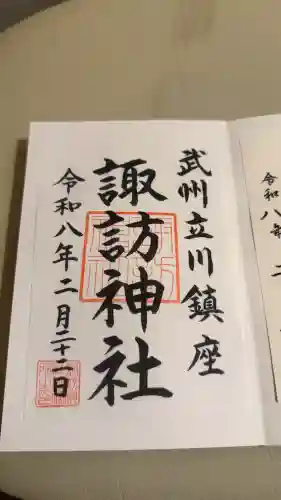 武州立川鎮座
諏訪神社
令和八年二月二十二日
令和八年二